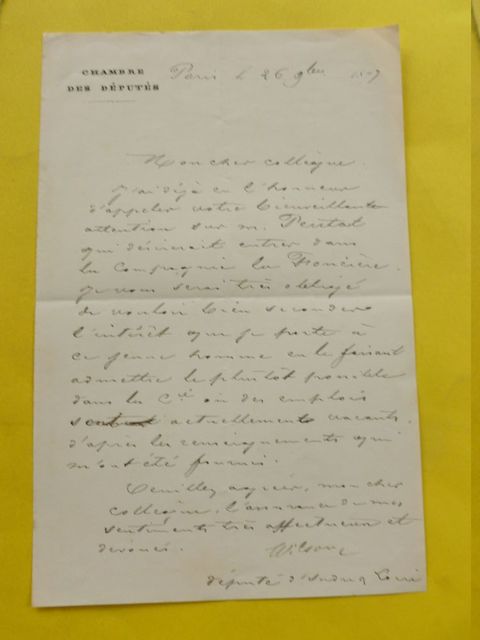 CHAMBRE
DES DÉPUTÉS
Paris le 26 9bre
Mon cher collègue.
J'ai déjà eu l'honneur
d'appeler votre bienveillante
attention sur M.
qui désirerait entrer dans
la Compagnie la Foncière.
Je vous serai très obligé
de vouloir bien seconder
l'intérêt que je porte à
ce jeune homme en le faisant
admettre le plutôt possible
dans la Cie où des emplois
sont actuellement vacants,
d'après les renseignements qui
m'ont été fournis.
Veuillez agréer, mon cher
collègue, l'assurance de mes
sentiments très affectueux et
dévoués.
Wilson
député d'Indre & Loire